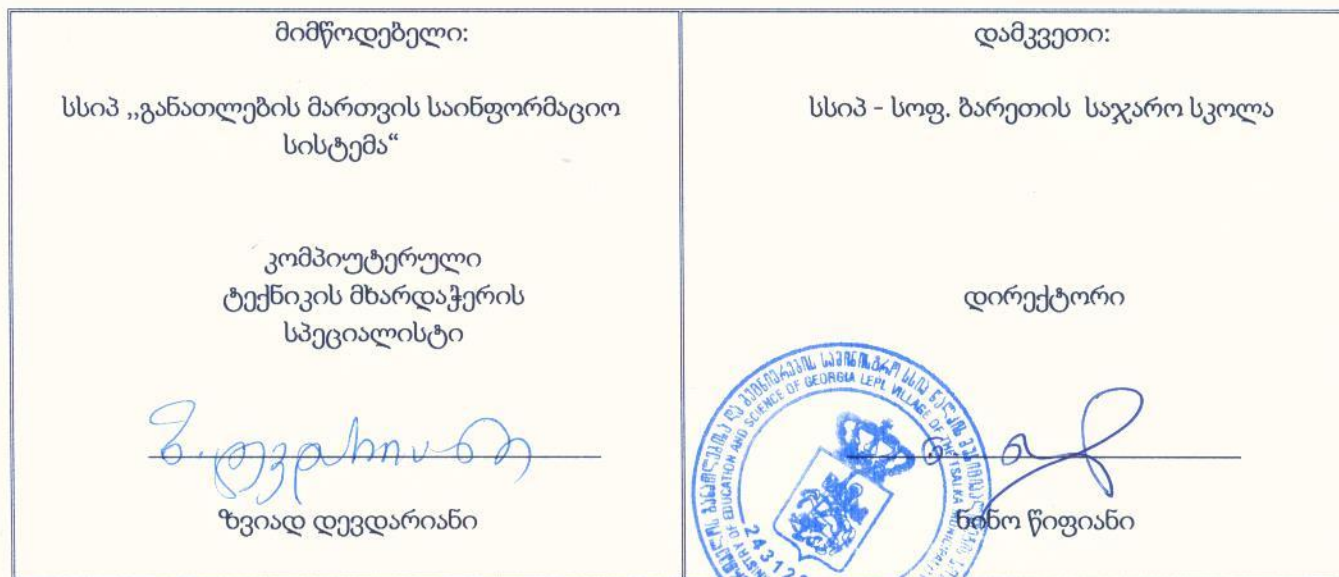 მიმწოდებელი:
სსიპ ,,განათლების მართვის საინფორმაციო
სისტემა“
კომპიუტერული
ტექნიკის მხარდაჭერის
სპეციალისტი
ზ. დევდარიანი
ზვიად დევდარიანი
დამკვეთი:
სსიპ - სოფ. ბარეთის საჯარო სკოლა
დირექტორი
ნინო წიფიანი
OF EDUCATION AND SCIENCE OF GEORGIA LEPL VILLAGE OF THE TSALKA